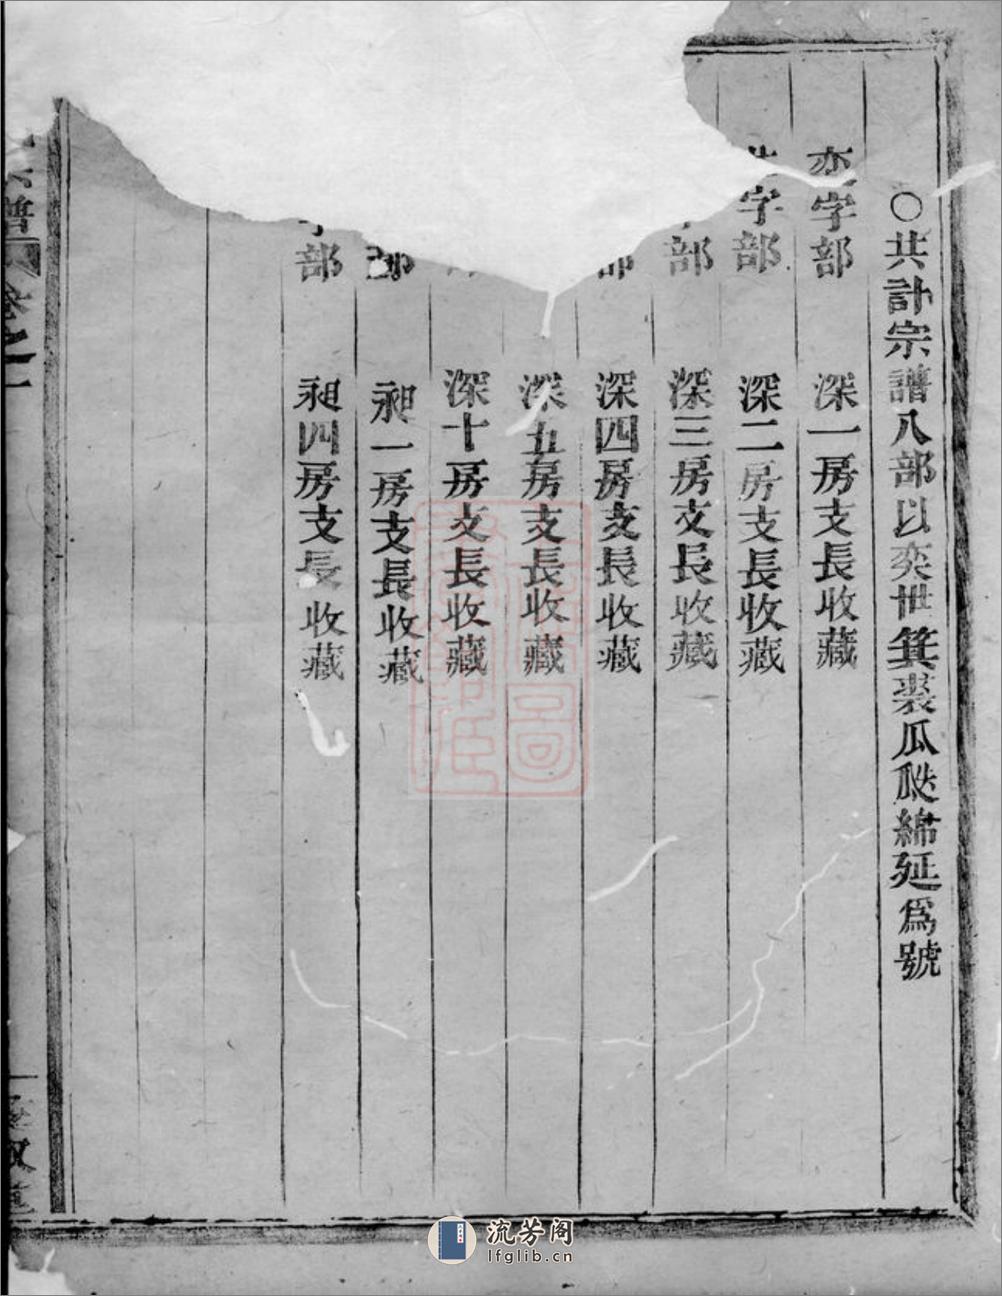 ○共計宗譜八部以奕世箕裘瓜瓞綿延爲號
奕字部 深一房支長收藏
世字部 深二房支長收藏
部 深三房支長收藏
部 深四房支長收藏
深五房支長收藏
深十房支長收藏
部 昶一房支長收藏
字部 昶四房支長收藏
宗譜 卷之一
流芳阁
lfglib.cn